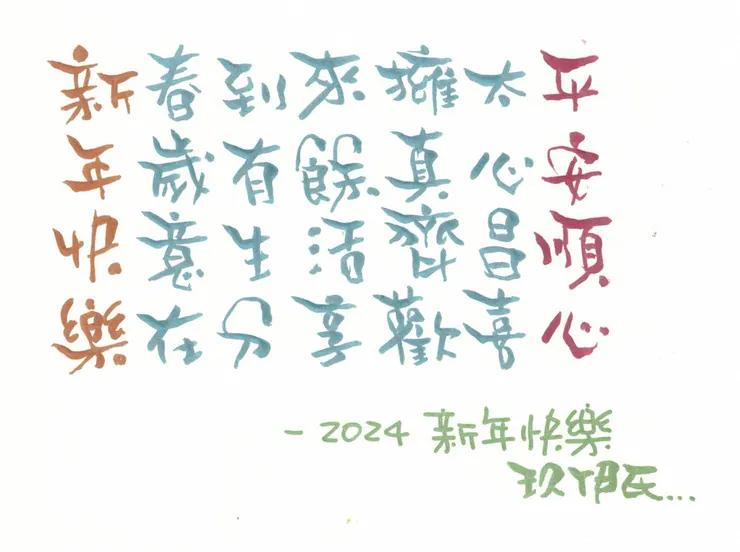 新春到來擁太平
年歲有餘真心安
快意生活齊昌順
樂在分享歡喜心
- 2024 新年快樂
玖伊氏...